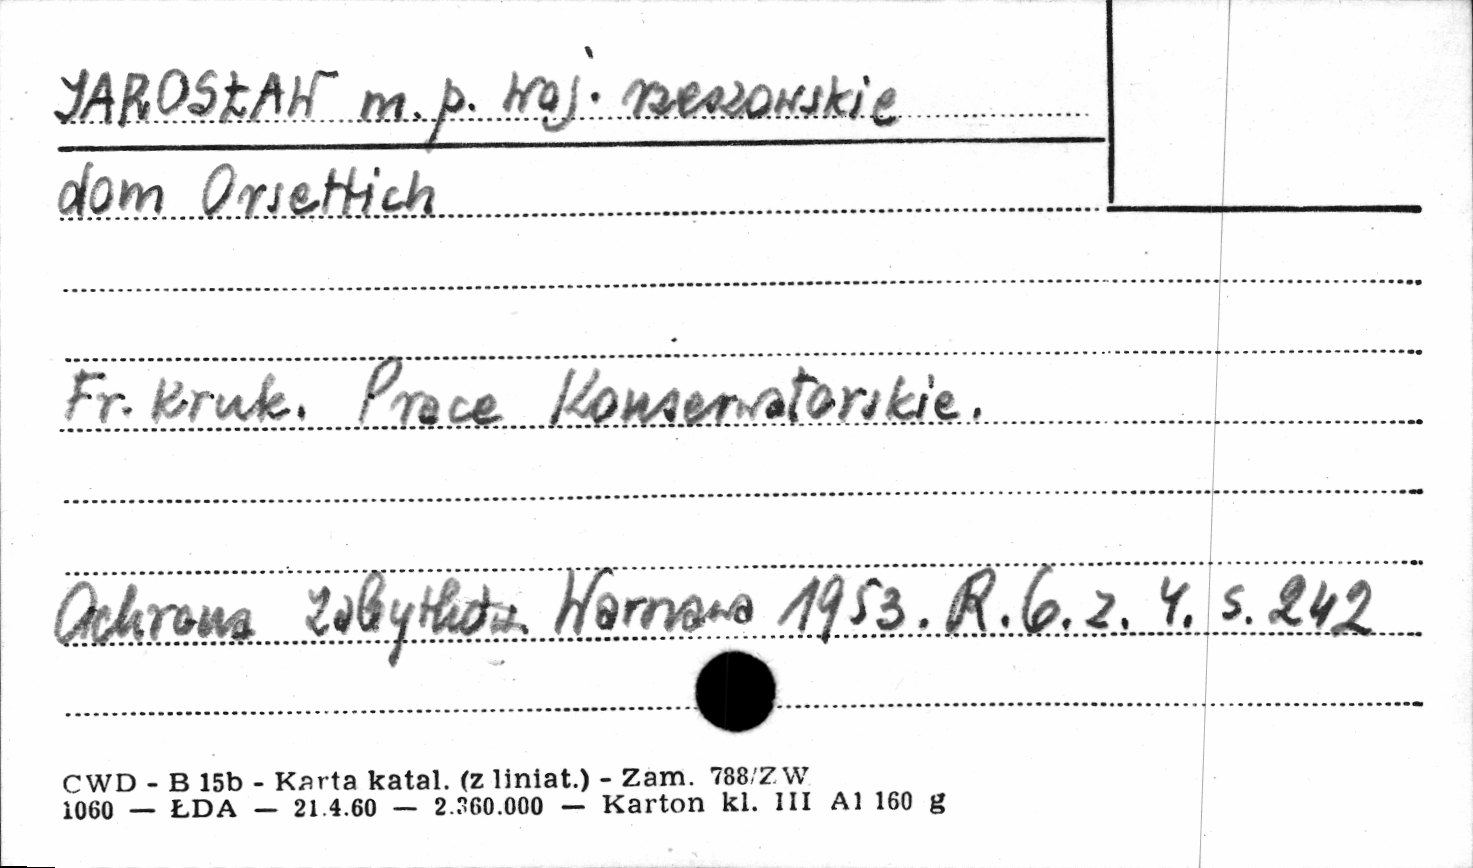 JAROSŁAW m. p. woj. rzeszowskie
dom Orsettich
Fr. Kruk. Prace Konserwatorskie.
Ochrona Zabytków. Warszawa 1953. R. 6. z. 4. s. 242
CWD - B 15b - Karta katal. (z liniat.) - Zam. 788/ZW
1060 — ŁDA — 21.4.60 — 2.360.000 — Karton kl. III A1 160 g